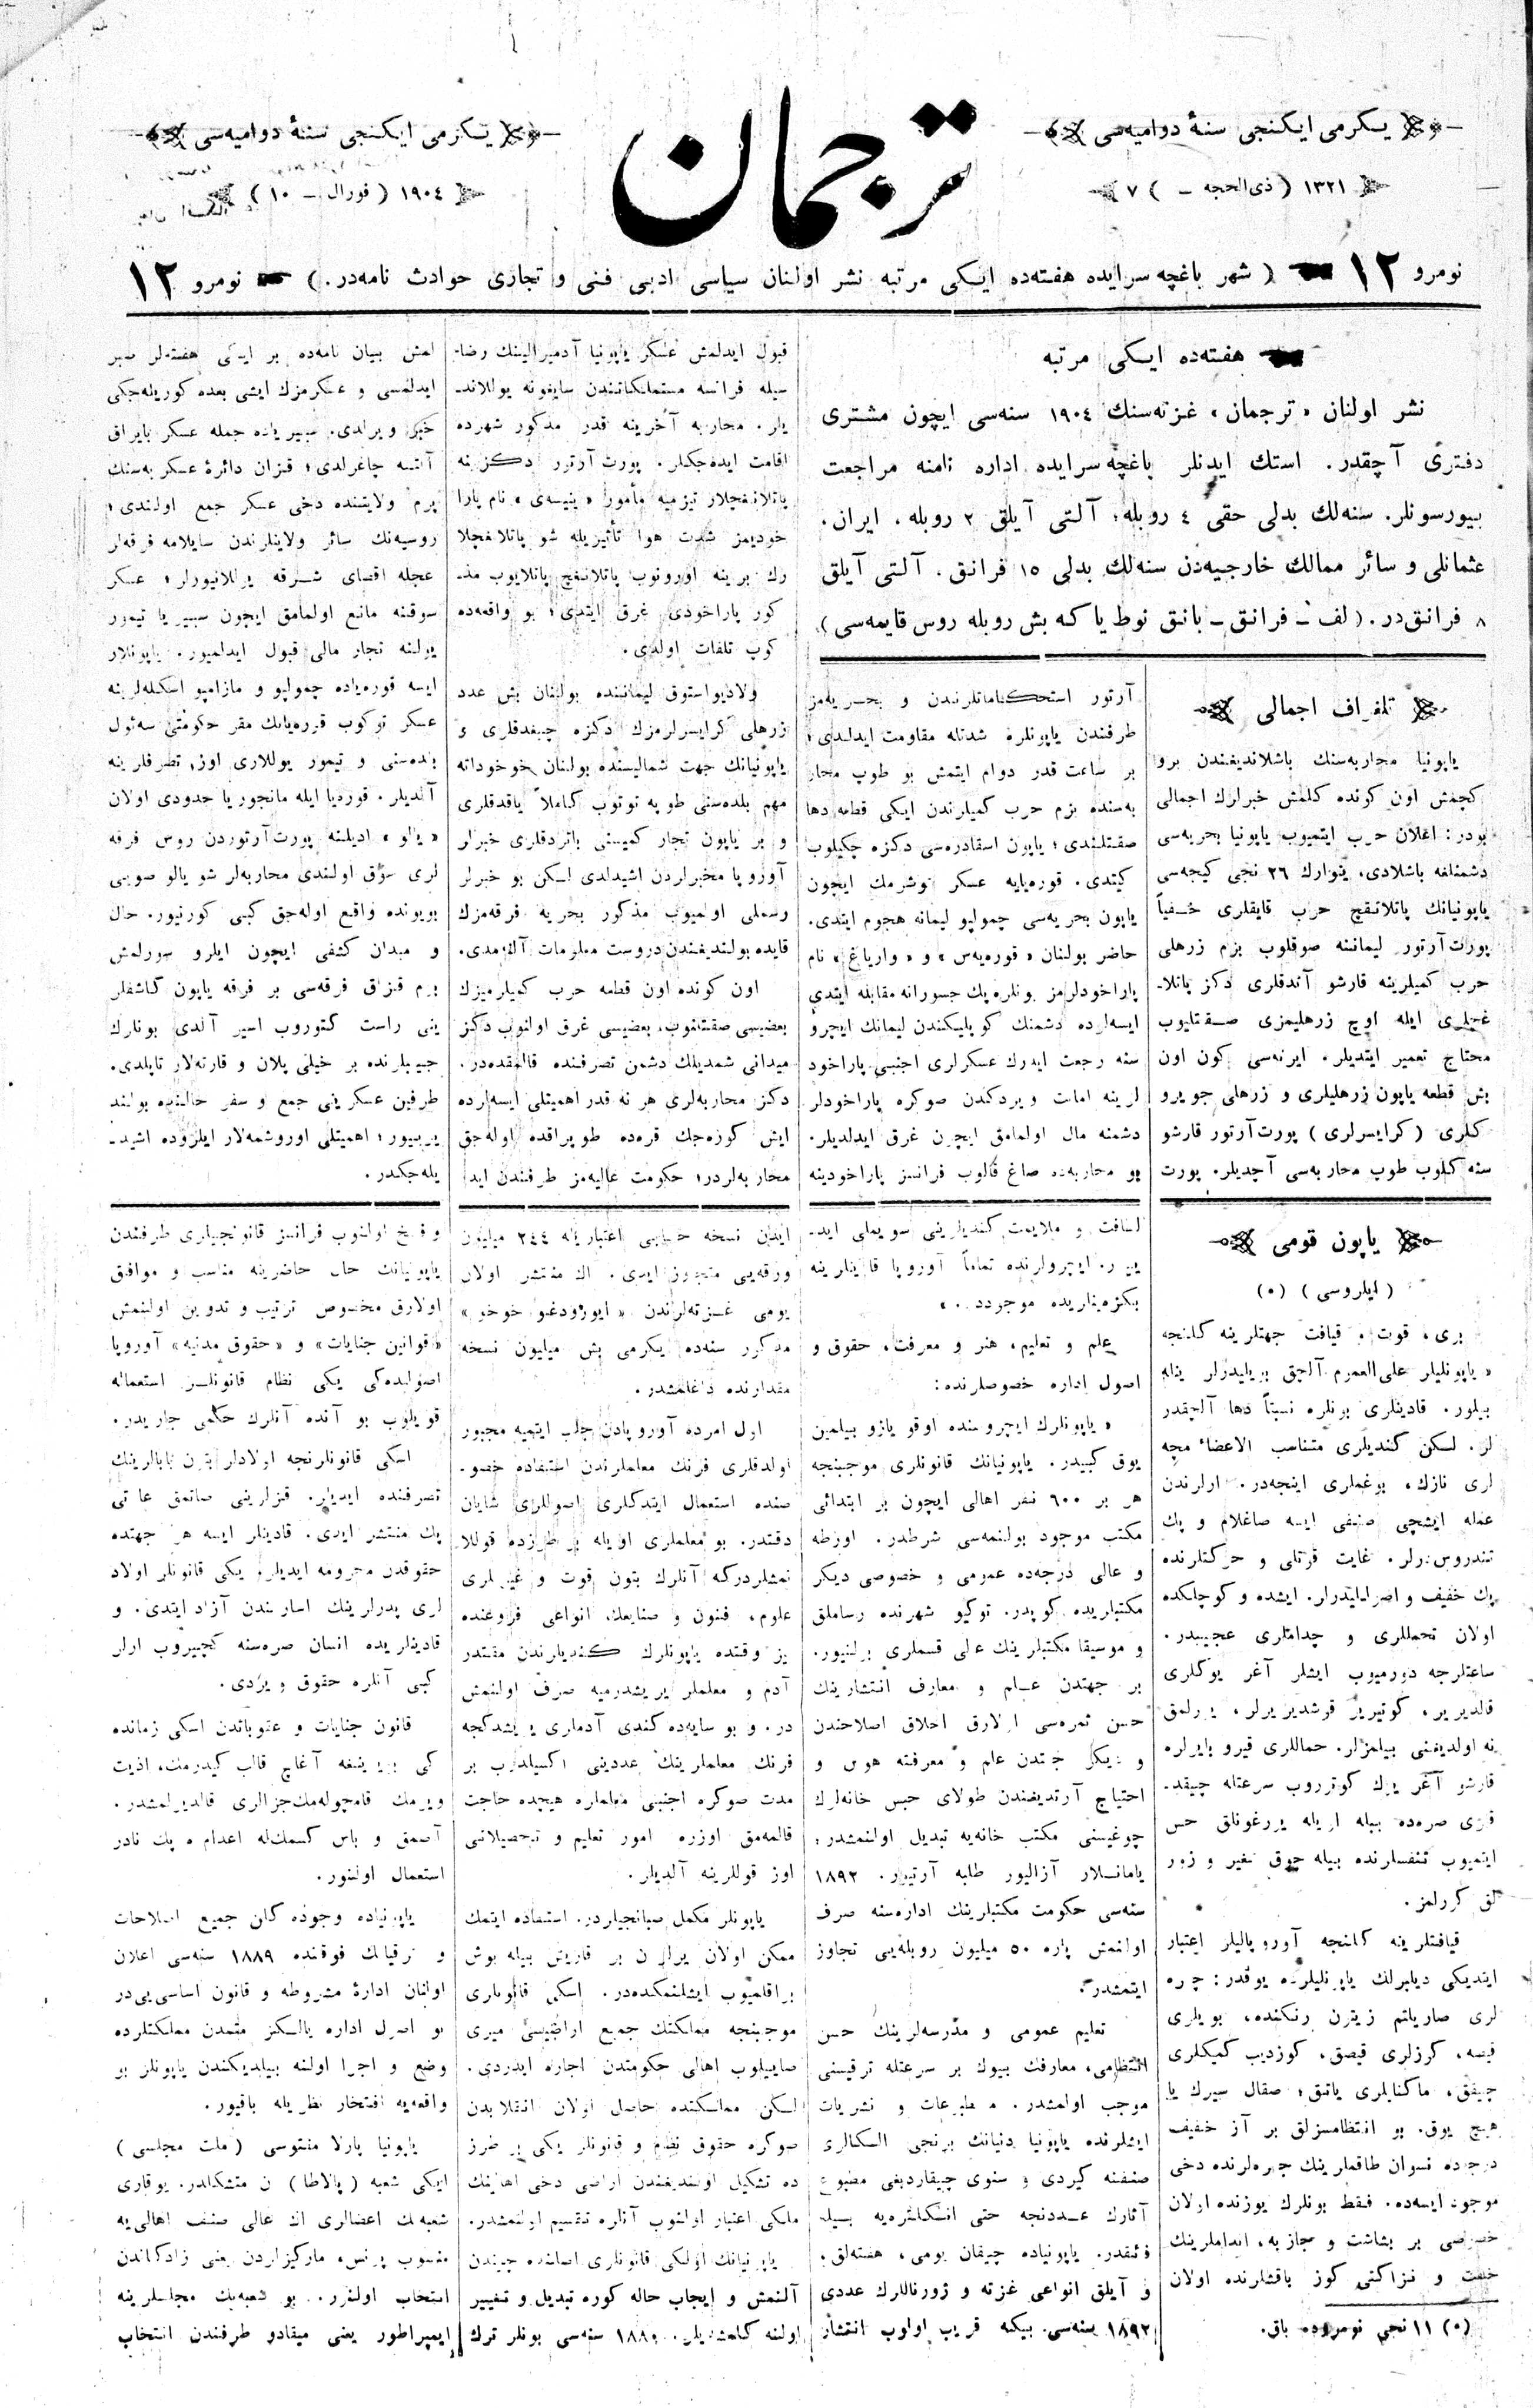 يكرمی ايكنجی سنهٔ دواميه‌سی
١٣٢١ ( ذی الحجه ـ ) ٧
ترجمان
يكرمی ايكنجی سنهٔ دواميه‌سی
١٩٠٤ ( فورال ـ ١٠ )
نومرو ١٢ ( شهر باغچه سرايده هفته‌ده ايكی مرتبه نشر اولنان سياسی ادبی فنی و تجاری حوادث نامه‌در. ) نومرو ١٢
هفته‌ده ايكی مرتبه
نشر اولنان « ترجمان » غزته‌سنك ١٩٠٤ سنه‌سی ايچون مشتری
دفتری آچقدر. استك ايدنلر باغچه سرايده اداره نامنه مراجعت
بيورسونلر. سنه‌لك بدلی حقی ٤ روبله؛ آلتی آيلق ٢ روبله، ايران،
عثمانلی و سائر ممالك خارجيه‌دن سنه‌لك بدلی ١٥ فرانق. آلتی آيلق
٨ فرانق‌در. ( لف ـ فرانق ـ بانق نوط ياكه بش روبله روس قايمه‌سی )
تلغراف اجمالی
ياپونيا محاربه‌سنك باشلانديغندن برو
كچمش اون كونده كلمش خبرلرك اجمالی
بودر: اعلان حرب ايتميوب ياپونيا بحريه‌سی
دشمنلغه باشلادی، ينوارك ٢٦ نجی كيجه‌سی
ياپونيانك پاتلانقچ حرب قايقلری خفياً
پورت آرتور ليماننه صوقلوب بزم زرهلی
حرب كميلرينه قارشو آتدقلری دكز پاتلا-
غچلری ايله اوچ زرهليمزی صقتليوب
محتاج تعمير ايتديلر. ايرته‌سی كون اون
بش قطعه ياپون زرهليلری و زرهلی جويرو
كلری ( كرايسرلری ) پورت آرتور قارشو
سنه كلوب طوپ محاربه‌سی آچديلر. پورت
آرتور استحكاماتلرندن و بحريه‌مز
طرفندن ياپونلره شدتله مقاومت ايدلدی؛
بر ساعت قدر دوام ايتمش بو طوپ محار
به‌سنده بزم حرب كميلرندن ايكی قطعه دها
صقتلندی؛ ياپون اسقادره‌سی دكزه چكيلوب
كيتدی. قوره‌يايه عسكر توشرمك ايچون
ياپون بحريه‌سی چمولپو ليمانه هجوم ايتدی.
حاضر بولنان « قوره‌يه‌س » و « وارياغ » نام
پاراخودلرمز بونلره پك جسورانه مقابله ايتدی
ايسه‌لرده دشمنك كوپليكندن ليمانك ايچرو
سنه رجعت ايدرك عسكرلری اجنبی پاراخود
لرينه امانت ويردكدن صوكره پاراخودلر
دشمنه مال اولمامق ايچون غرق ايدلديلر.
بو محاربه‌ده صاغ قالوب فرانسز پاراخودينه
قبول ايدلمش عسكر ياپونيا آدميرالينك رضا-
سيله فرانسه مستملكاتندن سايغونه يوللاند-
يلر. محاربه آخرينه قدر مذكور شهرده
اقامت ايده‌جكلر. پورت آرتور دكزينه
پاتلانغچلار تيزميه مأمور « ينيسه‌ی » نام پارا
خوديمز شدت هوا تأثيريله شو پاتلانغچلا
رك برينه اورونوب پاتلانقچ پاتلايوب مذ-
كور پاراخودی غرق ايتدی؛ بو واقعه‌ده
كوپ تلفات اولدی.
ولاديوستوق ليماننده بولنان بش عدد
زرهلی كرايسرلرمزك دكزه چيقدقلری و
ياپونيانك جهت شماليسنده بولنان خوخوداته
مهم بلده‌سنی طوپه توتوب كاملاً ياقدقلری
و بر ياپون تجار كميسنی باتردقلری خبرلر
آوروپا مخبرلردن اشيدلدی لكن بو خبرلر
رسملی اولميوب مذكور بحريه فرقه‌مزك
قايده بولنديغندن دروست معلومات آلنمدی.
اون كونده اون قطعه حرب كميلرميزك
بعضيسی صقتلنوب، بعضيسی غرق اولنوب دكز
ميدانی شمديلك دشمن تصرفنده قالمقده‌در.
دكز محاربه‌لری هر نه قدر اهميتلی ايسه‌لرده
ايش كوره‌جك قره‌ده طوپراقده اوله‌جق
محاربه‌لردر؛ حكومت عاليه‌مز طرفندن ايدا
لمش بيان نامه‌ده بر ايكی هفته‌لر صبر
ايدلمسی و عسكرمزك ايشی بعده كوريله‌جكی
خبر ويرلدی. سبيرياده جمله عسكر بايراق
آلتنه چاغرلدی؛ قزان دائرهٔ عسكريه‌سنك
پرم ولايتنده دخی عسكر جمع اولندی؛
روسيه‌نك سائر ولايتلرندن سايلامه فرقه‌لر
عجله اقصای شرقه يوللانيورلر؛ عسكر
سوقنه مانع اولمامق ايچون سبيريا تيمور
يولنه تجار مالی قبول ايدلميور. ياپونلار
ايسه قوره‌ياده چمولپو و مازامپو اسكله‌لرينه
عسكر توكوب قوره‌يانك مقر حكومتی سه‌ئول
بلده‌سنی و تيمور يوللاری اوز تصرفلرينه
آلديلر. قوره‌يا ايله مانجوريا حدودی اولان
« يالو » اديلنه پورت آرتوردن روس فرقه
لری سوق اولندی محاربه‌لر شو يالو صويی
بويونده واقع اوله‌جق كبی كورنيور. حال
و ميدان كشفی ايچون ايلرو سورلمش
بزم قزاق فرقه‌سی بر فرقه ياپون كاشفلر
ينی راست كتوروب اسير آلدی بونلرك
جيبلرنده بر خيلی پلان و قارته‌لار تاپلدی.
طرفين عسكرينی جمع و سفر حالنده بولند
يريور؛ اهميتلی اوروشمه‌لار ايلروده اشيد-
يله‌جكدر.
ياپون قومی
( ايلروسی ) (٠)
بوی، قوت و قيافت جهتلرينه كلنجه
« ياپونليلر علی العموم آلچق بويليدرلر ينله
بيلور. قادينلری بونلره نسبتاً دها آلچقدر
لر. لكن كنديلری متناسب الاعضاء مچه
لری نازك، بوغملری اينجه‌در. ارلرندن
عمله ايشچی صنفی ايسه صاغلام و پك
تندروس‌درلر. غايت قوتلی و حركتلرنده
پك خفيف و اصوللیدرلر. ايشده و كوچلكده
اولان تحمللری و چداملری عجيبدر.
ساعتلرجه دورميوب ايشلر آغر يوكلری
قالديرير، كوتيرير قوشديرلر، يورلمق
نه اولديغنی بيلمزلر. حماللری قيرو بايرلره
قارشو آغر يوك كوتروب سرعتله چيقد-
قلری صره‌ده بيله اويله يورغونلق حس
ايتميوب تنفسلرنده بيله چوق تغير و زور
لق كورلمز.
قيافتلرينه كلنجه آوروپاليلر اعتبار
ايتديكی ديلبرلك ياپونليلرده يوقدر: چره
لری صاريلتم زيتون رنكنده، بويلری
قيصه، كوزلری قيصق، كوزديب كميكلری
چيقق، ماكنايلری ياتق؛ صقال سيرك يا
هيچ يوق. بو انتظامسزلق بر آز خفيف
درجه‌ده نسوان طاقملرينك چهره‌لرنده دخی
موجود ايسه‌ده. فقط بونلرك يوزنده اولان
خصوصی بر بشاشت و مجازبه، انداملرينك
خفت و نزاكتی كوز باقشلرنده اولان
(٠) ١١ نجی نومروده باق.
لطافت و ملايمت كنديلرينی سويملی ايد-
يور. ايچرولرنده تماماً آوروپا قادينلرينه
بكزه‌ينلريده موجوددر. »
علم و تعليم، هنر و معرفت، حقوق و
اصول اداره خصوصلرنده:
« ياپونلرك ايچروسنده اوقو يازو بيلمين
يوق كبيدر. ياپونيانك قانونلری موجبنجه
هر بر ٦٠٠ نفر اهالی ايچون بر ابتدائی
مكتب موجود بولنمه‌سی شرطدر. اورطه
و عالی درجه‌ده عمومی و خصوصی ديكر
مكتبلريده كوپدر. توكيو شهرنده رساملق
و موسيقا مكتبلرينك عالی قسملری بولنيور.
بر جهتدن علم و معارف انتشارينك
حسن ثمره‌سی اولارق اخلاق اصلاحندن
و ديكر جهتدن علم و معرفته هوس و
احتياج آرتديغندن طولای حبس خانه‌لرك
چوغيسنی مكتب خانه‌يه تبديل اولنمشدر؛
يامانلار آزاليور طلبه آرتيور. ١٨٩٢
سنه‌سی حكومت مكتبلرينك اداره‌سنه صرف
اولنمش پاره ٥٠ ميليون روبله‌يی تجاوز
ايتمشدر.
تعليم عمومی و مدرسه‌لرينك حسن
انتظامی، معارفك بيوك بر سرعتله ترقيسنی
موجب اولمشدر. مطبوعات و نشريات
ايشلرنده ياپونيا دنيانك برنجی الكالری
صنفنه كيردی و سنوی چيقارديغی مطبوع
آثارك عددنجه حتی انكلتره‌يه بيله
فائقدر. ياپونياده چيقان يومی، هفته‌لق،
و آيلق انواعی غزته و ژورناللرك عددی
١٨٩٢ سنه‌سی بيكه قريب اولوب انتشار
ايدن نسخه حسابی اعتباريله ٢٤٤ ميليون
ورقه‌يی متجاوز ايدی. اك منتشر اولان
يومی غزته‌لرندن « ايوزودغو خوخو »
مذكور سنه‌ده يكرمی بش ميليون نسخه
مقدارنده داغلمشدر.
اول امرده آوروپادن جلب ايتميه مجبور
اولدقلری فرنك معلملرندن استفاده خصو-
صنده استعمال ايتدكلری اصوللری شايان
دقتدر. بو معلملری اويله بر طرزده قوللا
نمشلردركه آنلرك بتون قوت و غيرتلری
علوم، فنون و صنايعك انواعی فروعنده
يز وقتده ياپونلرك كنديلرندن مقتدر
آدم و معلملر يريشدرميه صرف اولنمش
در. و بو سايه‌ده كندی آدملری يتيشدكجه
فرنك معلملرينك عددينی اكسيلدوب بر
مدت صوكره اجنبی معلملره هيچده حاجت
قالمه‌مق اوزره امور تعليم و تحصيلاتی
اوز قوللرينه آلديلر.
ياپونلر مكمل صبانجيلردر. استفاده ايتمك
ممكن اولان يرلردن بر قاريش بيله بوش
براقلميوب ايشلنمكده‌در. اسكی قانونلری
موجبنجه مملكتك جميع اراضيسی ميری
صاييلوب اهالی حكومتدن اجاره ايدردی.
لكن مملكتده حاصل اولان انقلابدن
صوكره حقوق نظام و قانونلر يكی بر طرز
ده تشكيل اولنديغندن اراضی دخی اهلينك
ملكی اعتبار اولنوب آنلره تقسيم اولنمشدر.
ياپونيانك اولكی قانونلری اصلنده چيندن
آلنمش و ايجاب حاله كوره تبديل و تغيير
اولنه كلمشديلر. ١٨٨٠ سنه‌سی بونلر ترك
و فسخ اولنوب فرانسز قانونجيلری طرفندن
ياپونيانك حال حاضرينه مناسب و موافق
اولارق مخصوص ترتيب و تدوين اولنمش
« قوانين جنايات » و « حقوق مدنيه » آوروپا
اصولنده‌كی يكی نظام قانونلر استعماله
قويلوب بو آنده آنلرك حكمی جاريدر.
اسكی قانونلرنجه اولادلر بتون بابالرينك
تصرفنده ايديلر. قزلرينی صاتمق عادتی
پك منتشر ايدی. قادينلر ايسه هر جهتده
حقوقدن محرومه ايديلر. يكی قانونلر اولاد
لری پدرلرينك اسارتندن آزاد ايتدی. و
قادينلريده انسان صره‌سنه كچيروب ارلر
كبی آنلره حقوق ويردی.
قانون جنايات و عقوباتدن اسكی زمانده
كی بوينه آغاچ قالب كيدرمك، اذيت
ويرمك قامچوله‌مك جزالری قالديرلمشدر.
آصمق و باش كسمك‌له اعدام ده پك نادر
استعمال اولنور.
ياپونياده وجوده كلن جميع اصلاحات
و ترقياتك فوقنده ١٨٨٩ سنه‌سی اعلان
اولنان ادارهٔ مشروطه و قانون اساسی‌يی‌در
بو اصول اداره يالكز متمدن مملكتلرده
وضع و اجرا اولنه بيلديكندن ياپونلر بو
واقعه‌يه افتخار نظريله باقيور.
ياپونيا پارلا منتوسی ( ملت مجلسی )
ايكی شعبه ( پالاطا ) دن متشكلدر. يوقاری
شعبه‌نك اعضالری اك عالی صنف اهالی‌يه
منسوب پرنس، ماركيزلردن يعنی زادكاندن
انتخاب اولنور. بو شعبه‌نك مجلسلرينه
ايمپراطور يعنی ميقادو طرفندن انتخاب